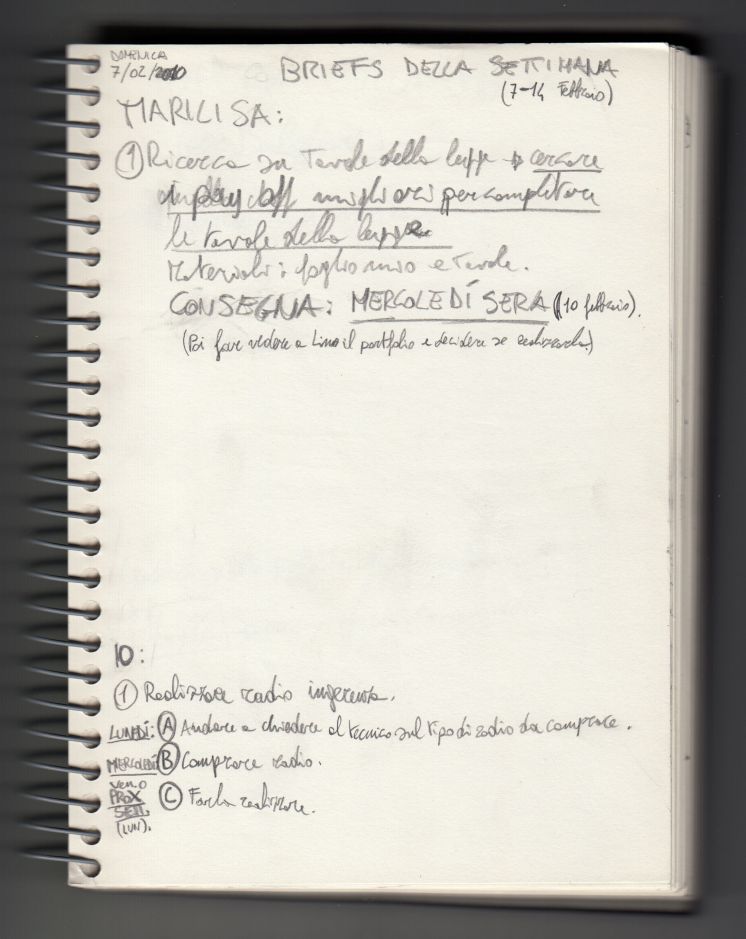 DOMENICA
7/02/2010
BRIEFS DELLA SETTIMANA
(7-14 Febbraio)
MARILISA:
① Ricerca su Tavole della legge → cercare
i migliori per completare
le tavole della legge
Materiali: foglio mio e Tavole.
CONSEGNA: MERCOLEDÍ SERA (10 febbraio).
(Poi far vedere a Lino il portfolio e decidere se realizzarlo)
IO:
① Realizzare radio
LUNEDÍ: Ⓐ Andare a chiedere al tecnico sul tipo di radio da comprare.
MERCOLEDÍ Ⓑ Comprare radio.
VEN. O
PROX Ⓒ Farla realizzare.
SETT.
(LUN).